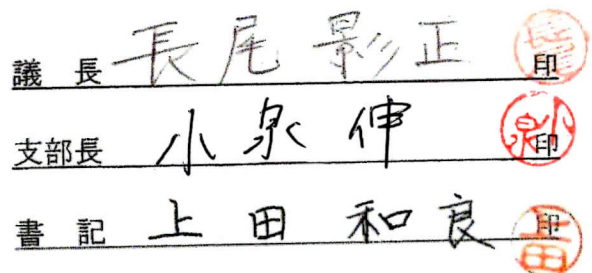 議長 長尾影正 印
支部長 小泉伸 印
書記 上田和良 印